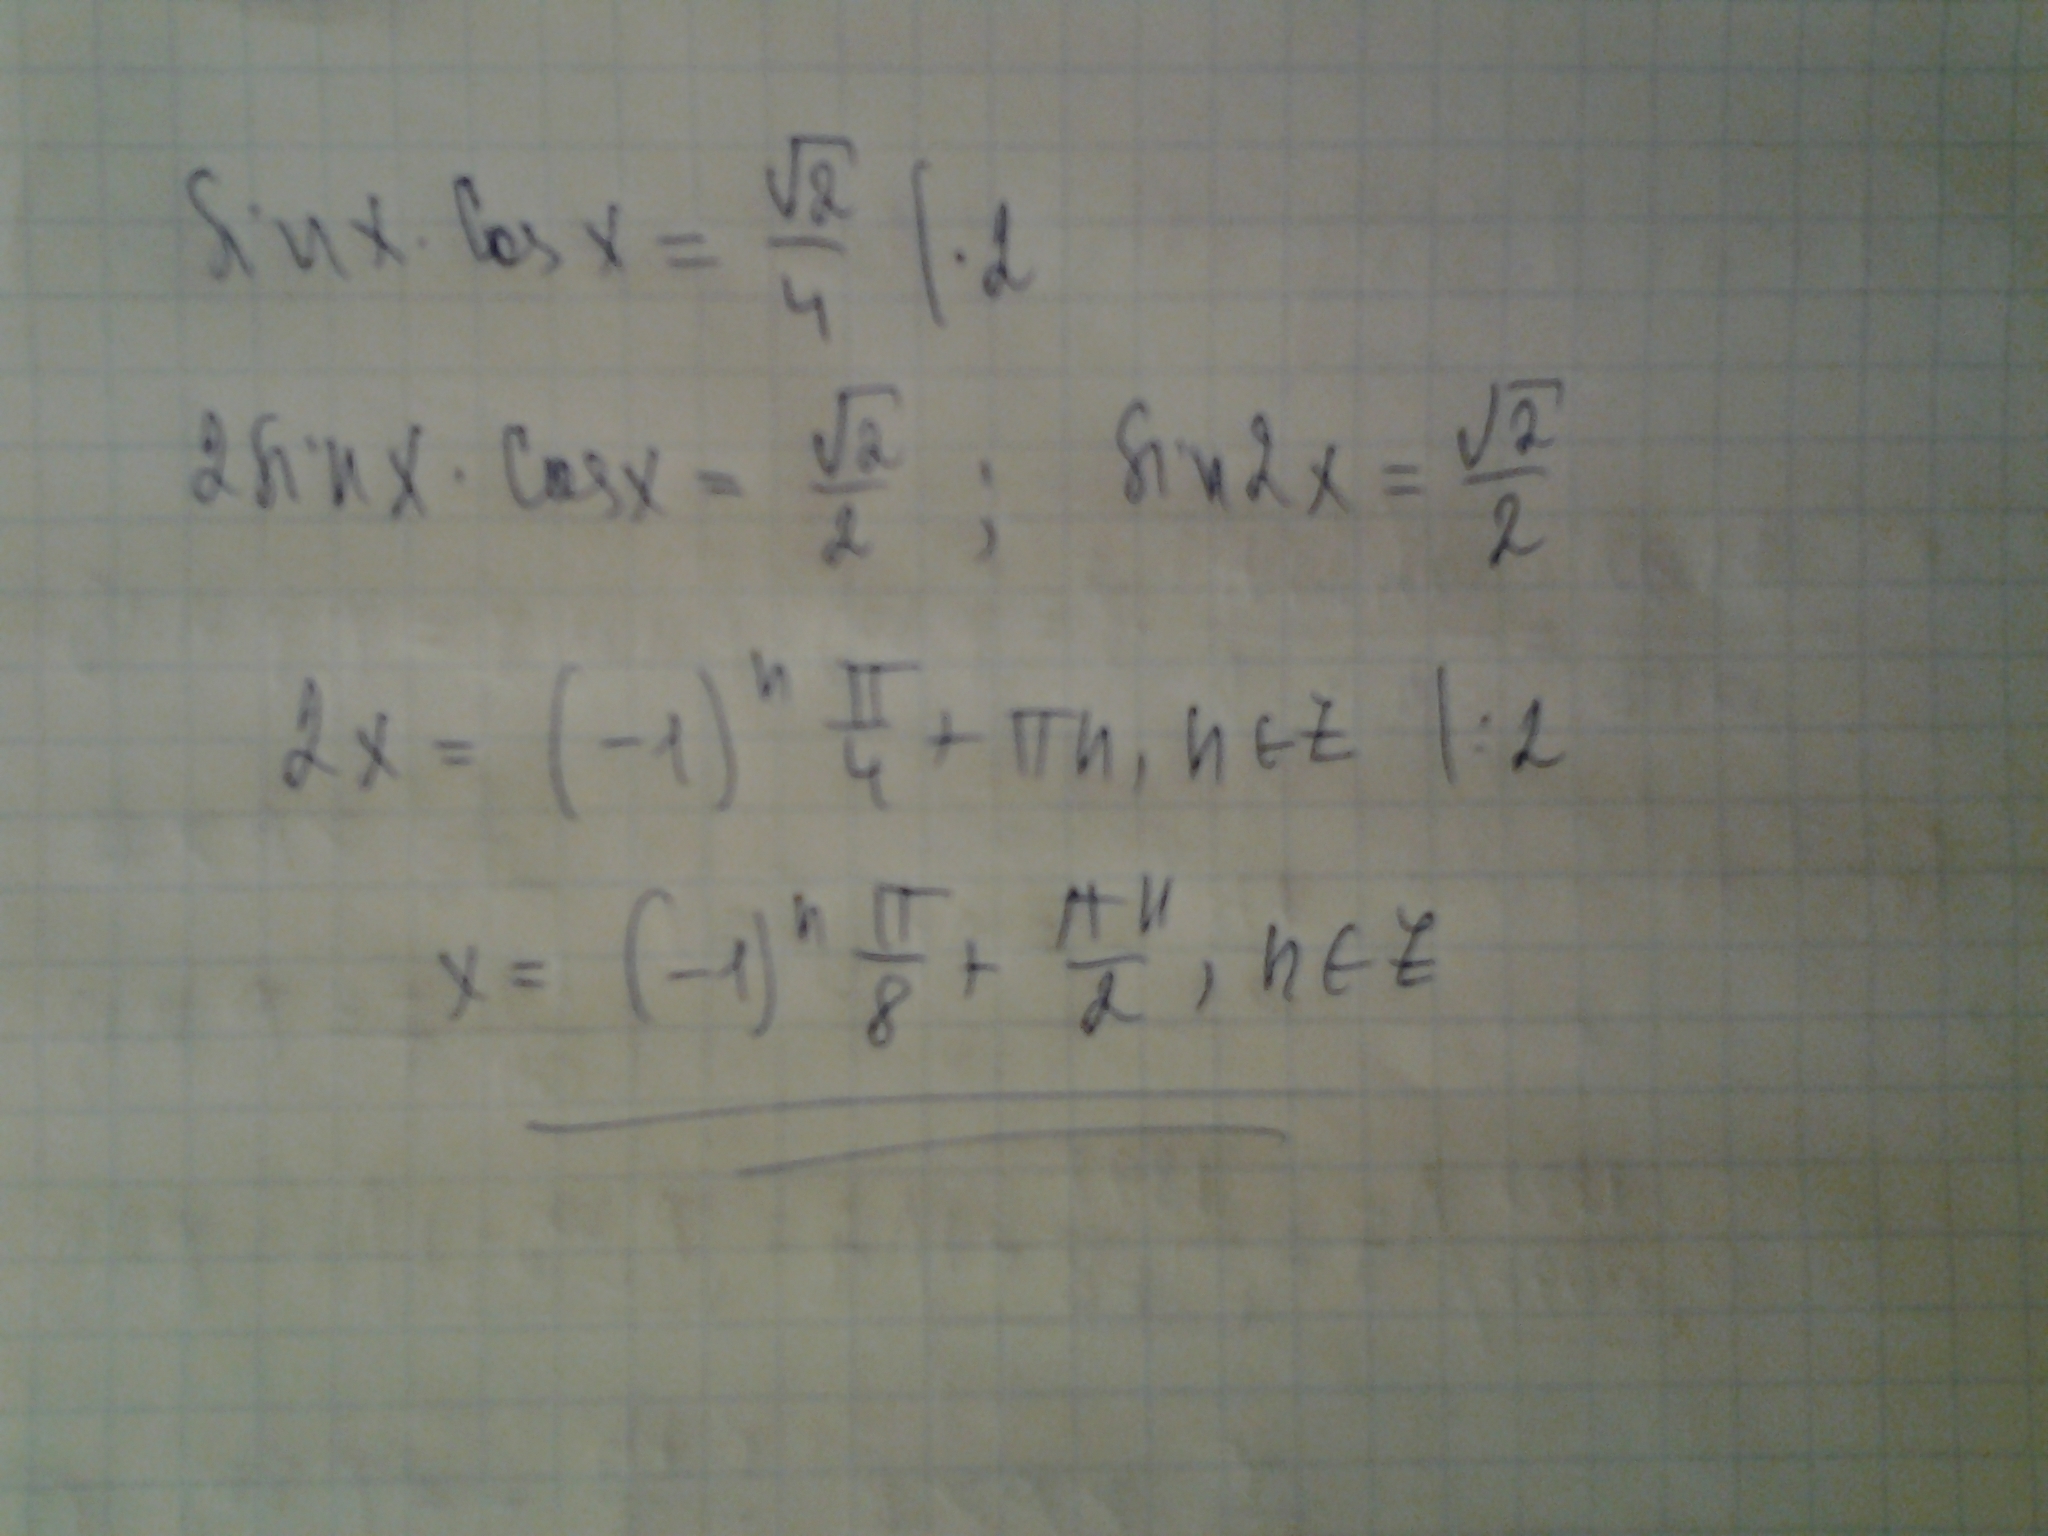 sin x · cos x = √2/4 | · 2
2 sin x · cos x = √2/2 ; sin 2x = √2/2
2x = (-1)ⁿ π/4 + πn, n ∈ Z | : 2
x = (-1)ⁿ π/8 + πn/2, n ∈ Z